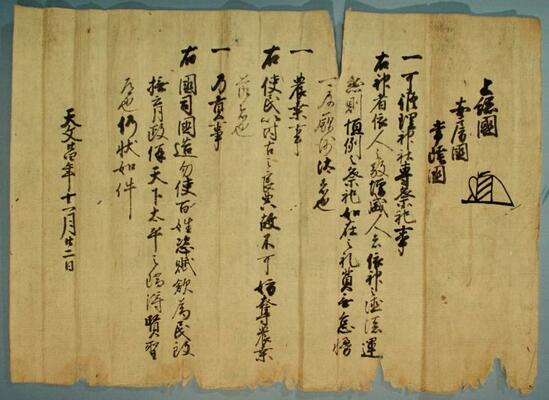 上総國
安房國
常陸國
一可修理神社専祭祀事
右神者依人之敬増威人者依神之徳添運
然則恒例之祭祀如在之礼奠無怠慢
也
一農業事
右使民以時古之良典故不可妨奪農業
者也
一乃貢事
右國司國造勿使百姓恣賦斂為民
撫育政保天下太平之瑞得賢聖
者也仍状如件
天文年十一月廿二日